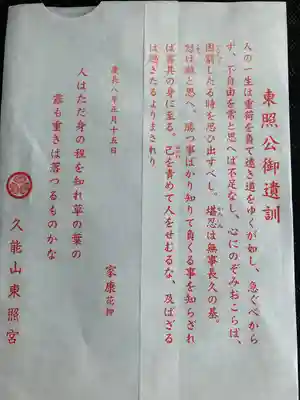 東照公御遺訓
人の一生は重荷を負て遠き道をゆくが如し、急ぐべから
ず、不自由を常と思へば不足なし、心にのぞみおこらば、
困窮したる時を思ひ出すべし。堪忍は無事長久の基。
怒は敵と思へ。勝つ事ばかり知りて負くる事を知らざれ
ば害其の身に至る。己を責めて人をせむるな、及ばざる
は過ぎたるよりまされり
慶長八年正月十五日
家康 花押
人はただ身の程を知れ草の葉の
露も重きは落つるものかな
久能山東照宮